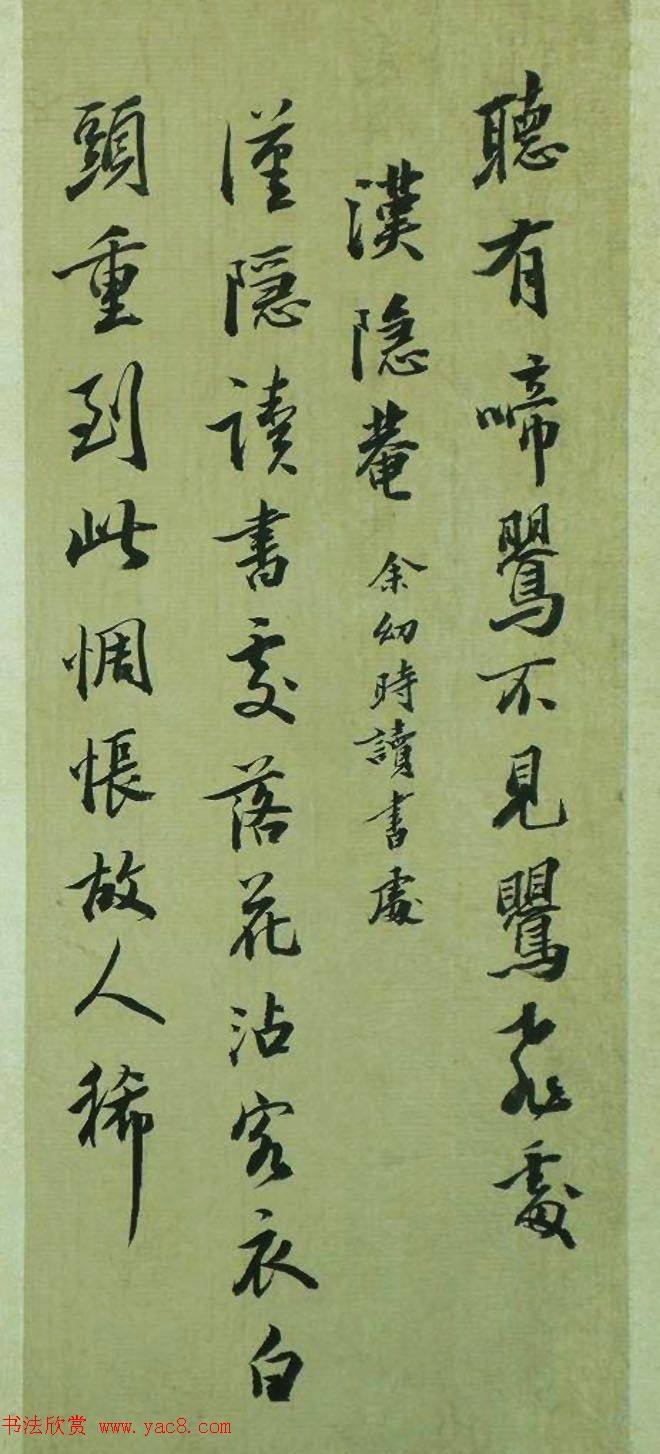 聽有啼鸎不見鸎飛處
漢隱菴 余幼時讀書處
漢隱讀書處落花沾客衣白
頭重到此惆悵故人稀
书法欣赏 www.yac8.com